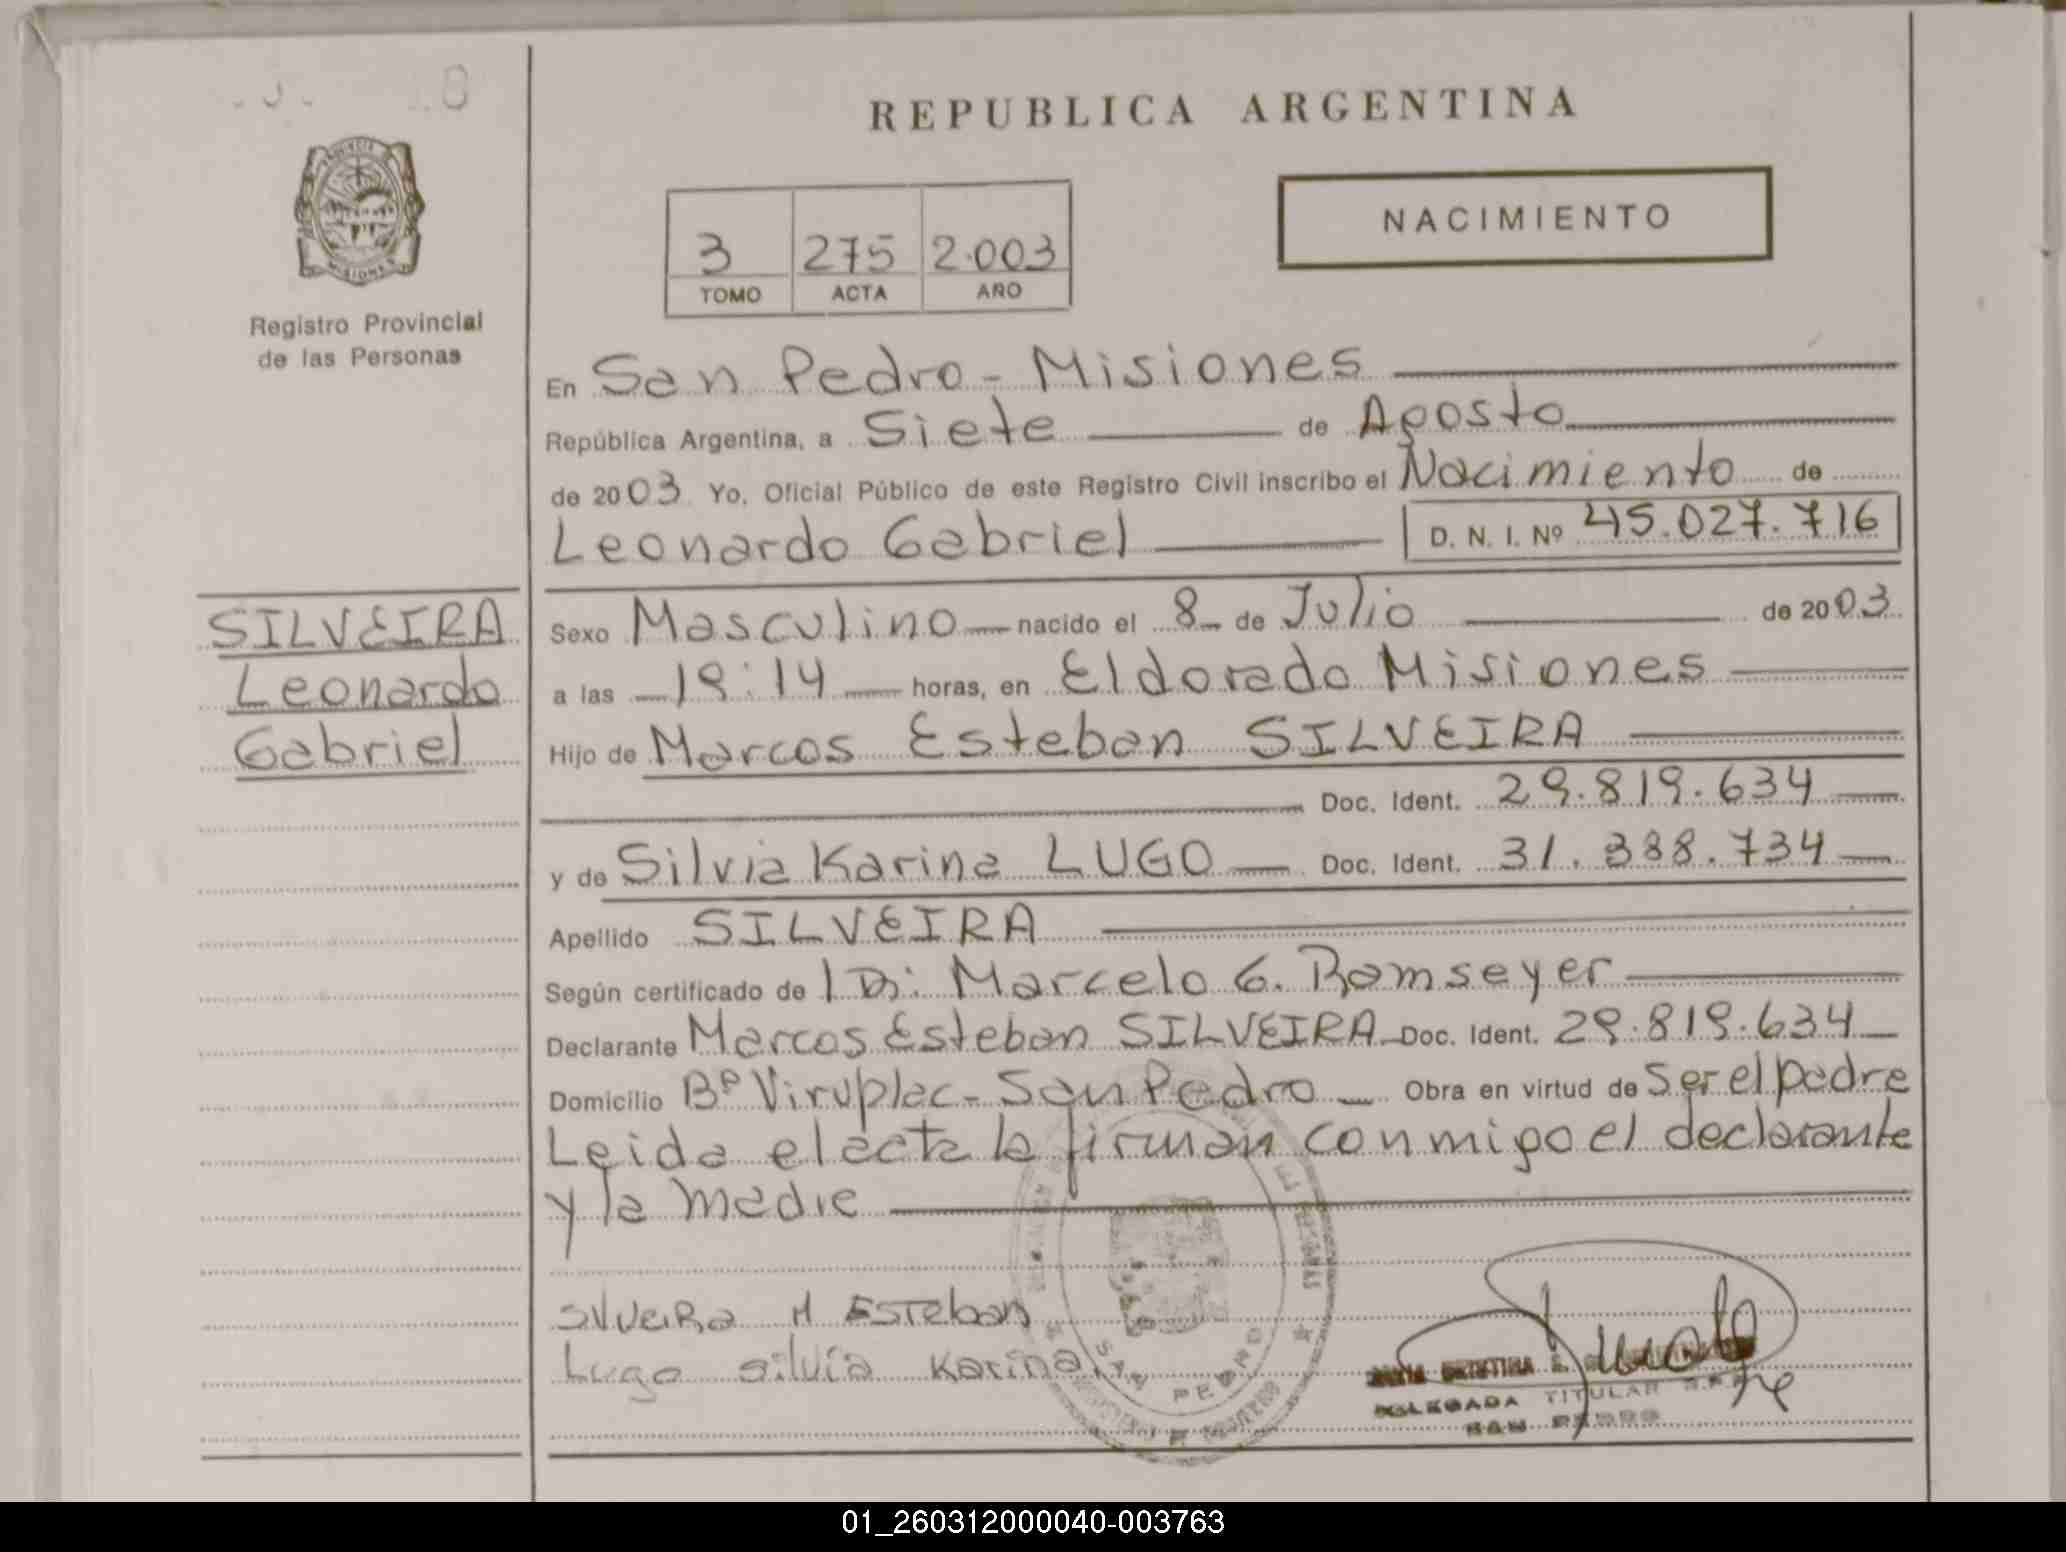 REPUBLICA ARGENTINA
PROVINCIA DE
MISIONES
Registro Provincial
de las Personas
3 275 2.003
TOMO ACTA AÑO
NACIMIENTO
En San Pedro - Misiones
República Argentina, a Siete de Agosto
de 2003 Yo, Oficial Público de este Registro Civil inscribo el Nacimiento de
Leonardo Gabriel D. N. I. Nº 45.027.716
SILVEIRA
Leonardo
Gabriel
Sexo Masculino nacido el 8 de Julio de 2003
a las 19:14 horas, en Eldorado Misiones
Hijo de Marcos Esteban SILVEIRA
Doc. Ident. 29.819.634
y de Silvia Karina LUGO Doc. Ident. 31.388.734
Apellido SILVEIRA
Según certificado de Marcelo G. Ramseyer
Declarante Marcos Esteban SILVEIRA Doc. Ident. 29.819.634
Domicilio Bº Viruplac - San Pedro Obra en virtud de Ser el padre
Leida el acta la firman conmigo el declarante
y la madre
Silveira M Esteban
Lugo Silvia Karina
SAN PEDRO
DELEGADA TITULAR R.P.P.
SAN PEDRO
01_260312000040-003763